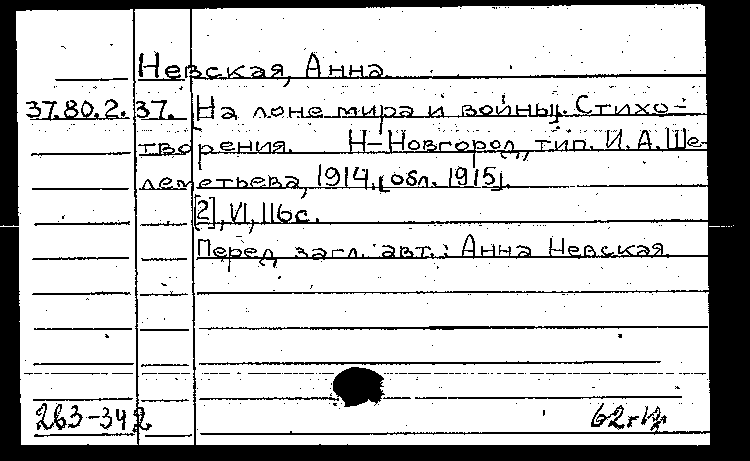 Невская, Анна.
37.80.2.37. [На лоне мира и войны]. Стихо-
творения. Н-Новгород, тип. И. А. Ше-
леметьева, 1914. [обл. 1915].
[2], VI, 116с.
Перед загл. авт.: Анна Невская.
263-342